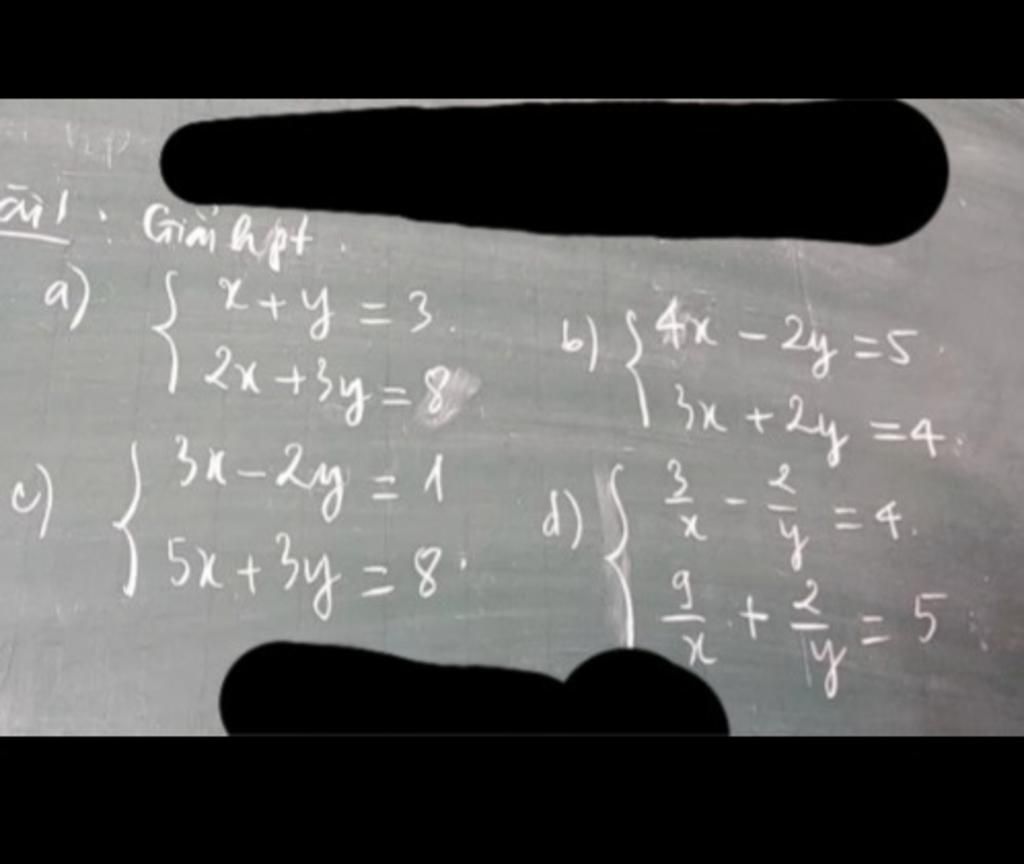 Bài 1 : Giải hpt.
a) { x + y = 3.
2x + 3y = 8
b) { 4x - 2y = 5.
3x + 2y = 4.
c) { 3x - 2y = 1
5x + 3y = 8.
d) { 3/x - 2/y = 4.
9/x + 2/y = 5